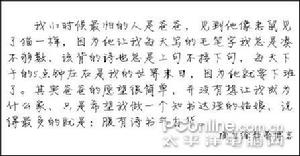 我小时候最怕的人是爸爸，见到他像老鼠见
了猫一样，因为他让我每天写的毛笔字我总是凑
不够数，该背的诗也总是上句不接下句，每天下
午的5点钟左右是我的世界末日，因为他就要下班
了。其实爸爸的愿望很简单，并没有想让我成为
什么家，只是希望我做一个知书达理的姑娘，说
得最多的就是：腹有诗书气自华
PConline
太平洋电脑网